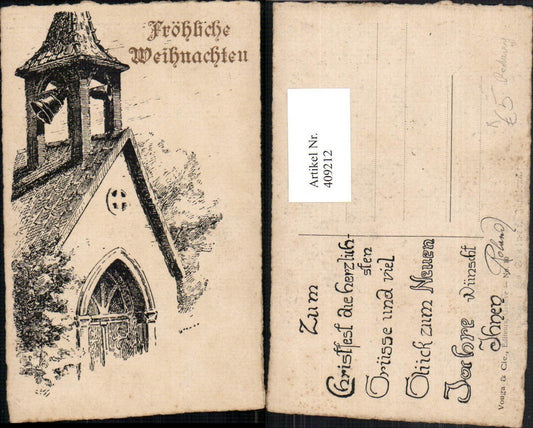 Fröhliche
Weihnachten
Artikel Nr.
409212
€5
Zum
Christfest die herzlich-
sten
Grüsse und viel
Glück zum Neuen
Jahre wünscht
Ihnen
Vouga & Cie.,